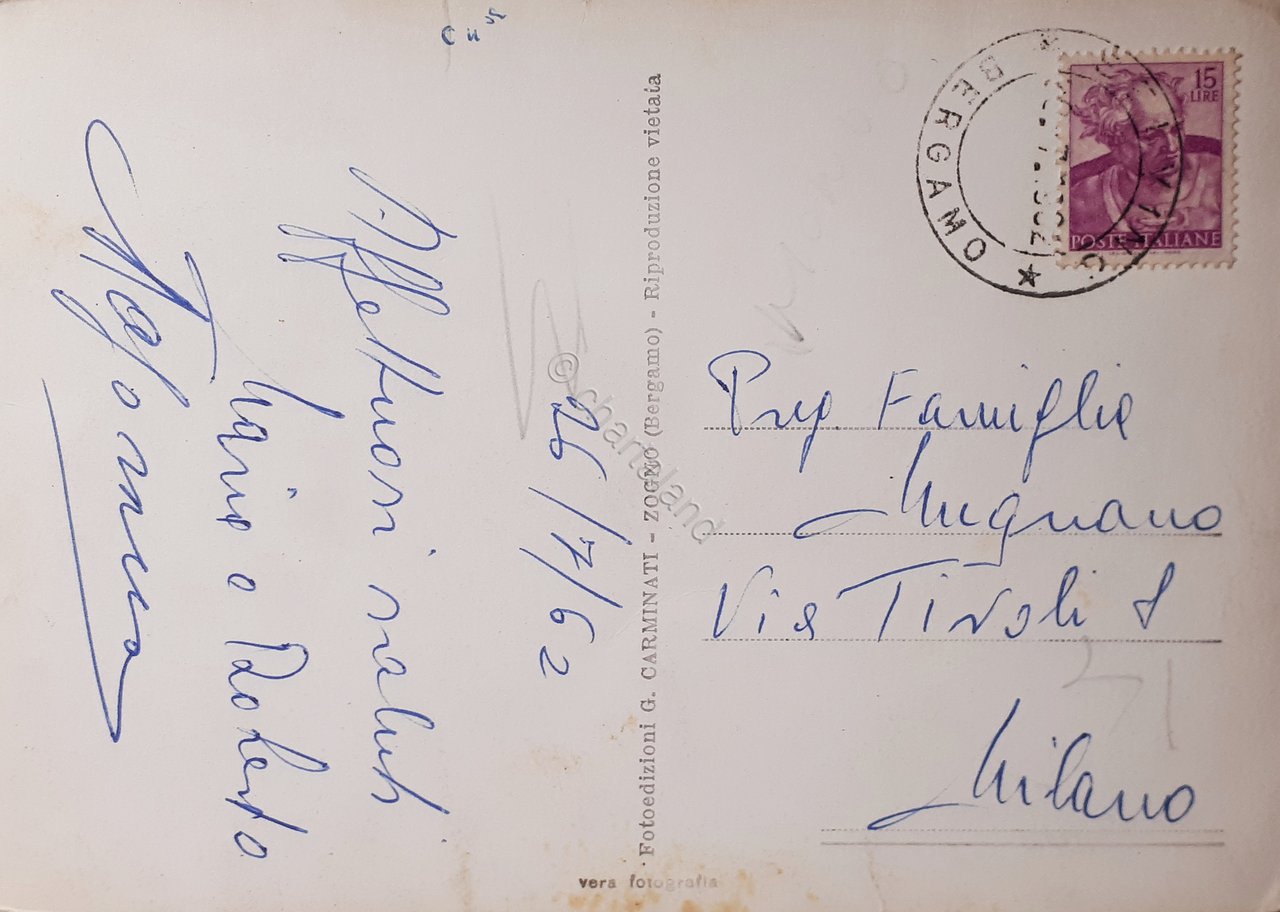 26/7/62
Affettuosi saluti
Mario e Roberto
15
LIRE
POSTE ITALIANE
BERGAMO
Preg. Famiglia
Mugnano
Via Tivoli 8
Milano
Fotoedizioni G. CARMINATI - ZOGNO (Bergamo) - Riproduzione vietata
vera fotografia
© chartaland